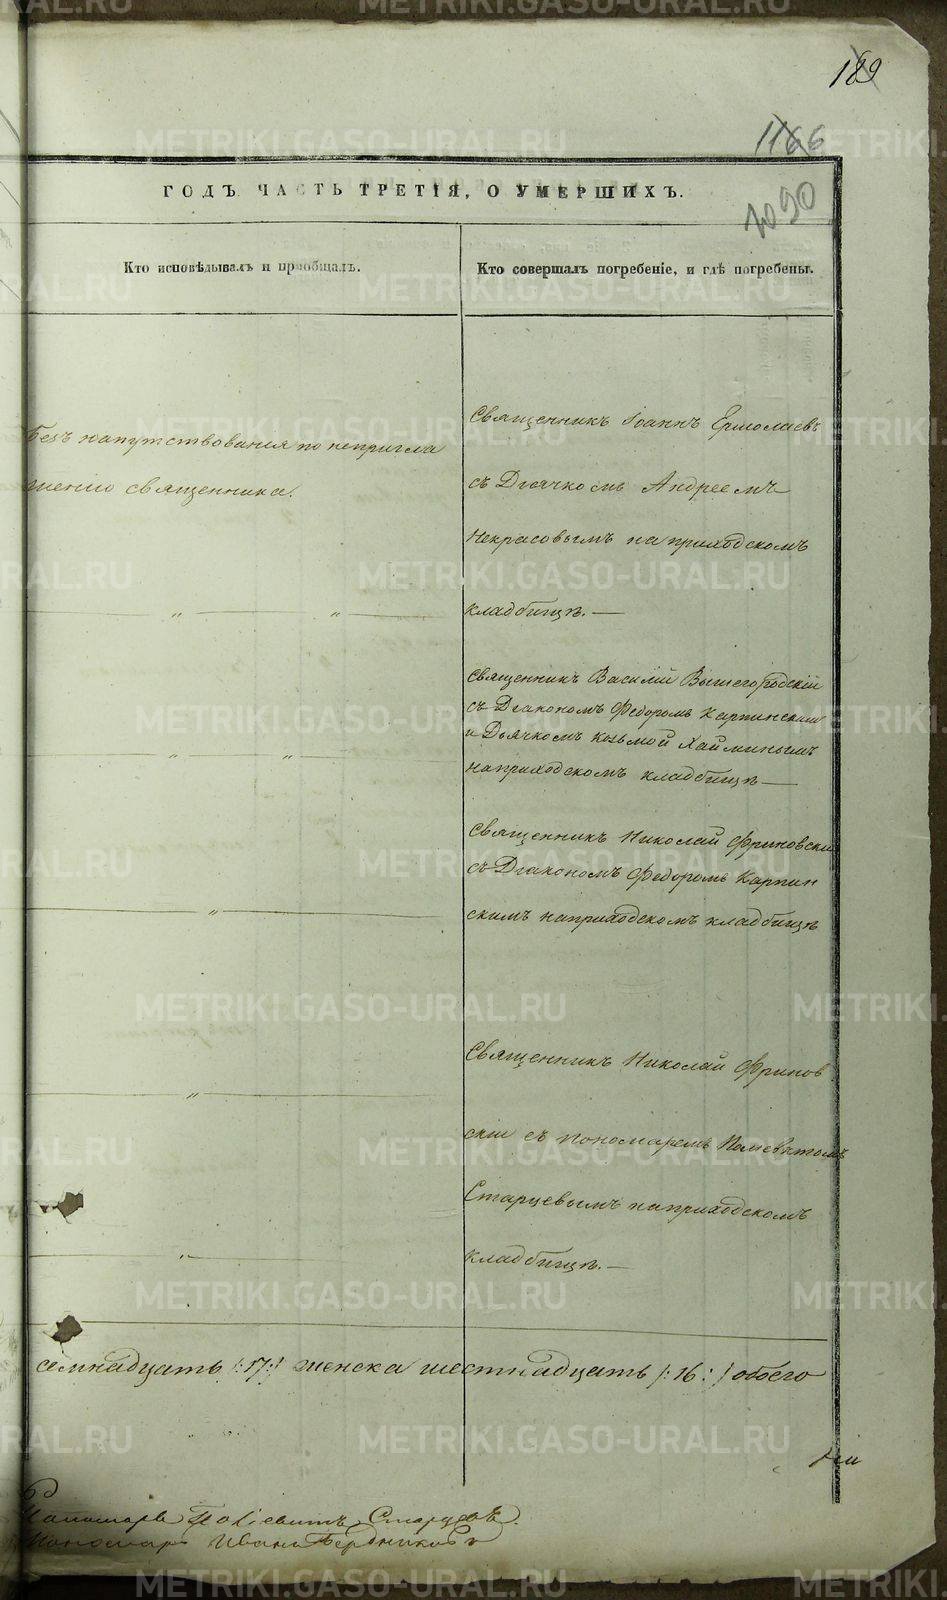 189
1166
1090
ГОДЪ ЧАСТЬ ТРЕТІЯ, О УМЕРШИХЪ.
Кто исповѣдывалъ и пріобщалъ.
Кто совершалъ погребеніе, и гдѣ погребены.
Безъ напутствованія по непригла
шенію священника.
Священникъ Іоаннъ Ермолаевъ
съ Дьячкомъ Андреемъ
Некрасовымъ на приходскомъ
кладбищѣ. —
Священникъ Василій Вышегородскій
съ Діакономъ Федоромъ Карпинскимъ
и Дьячкомъ Козьмой Хайминымъ
на приходскомъ кладбищѣ —
Священникъ Николай Фриновскій
съ Діакономъ Федоромъ Карпин
скимъ на приходскомъ кладбищѣ
Священникъ Николай Фринов
скій съ пономаремъ Полієвктомъ
Старцевымъ на приходскомъ
кладбищѣ. —
семнадцать /:17:/ женска шестнадцать /:16:/ обоего
Пономарь Старцевъ.
Пономарь Иванъ Бердниковъ
METRIKI.GASO-URAL.RU